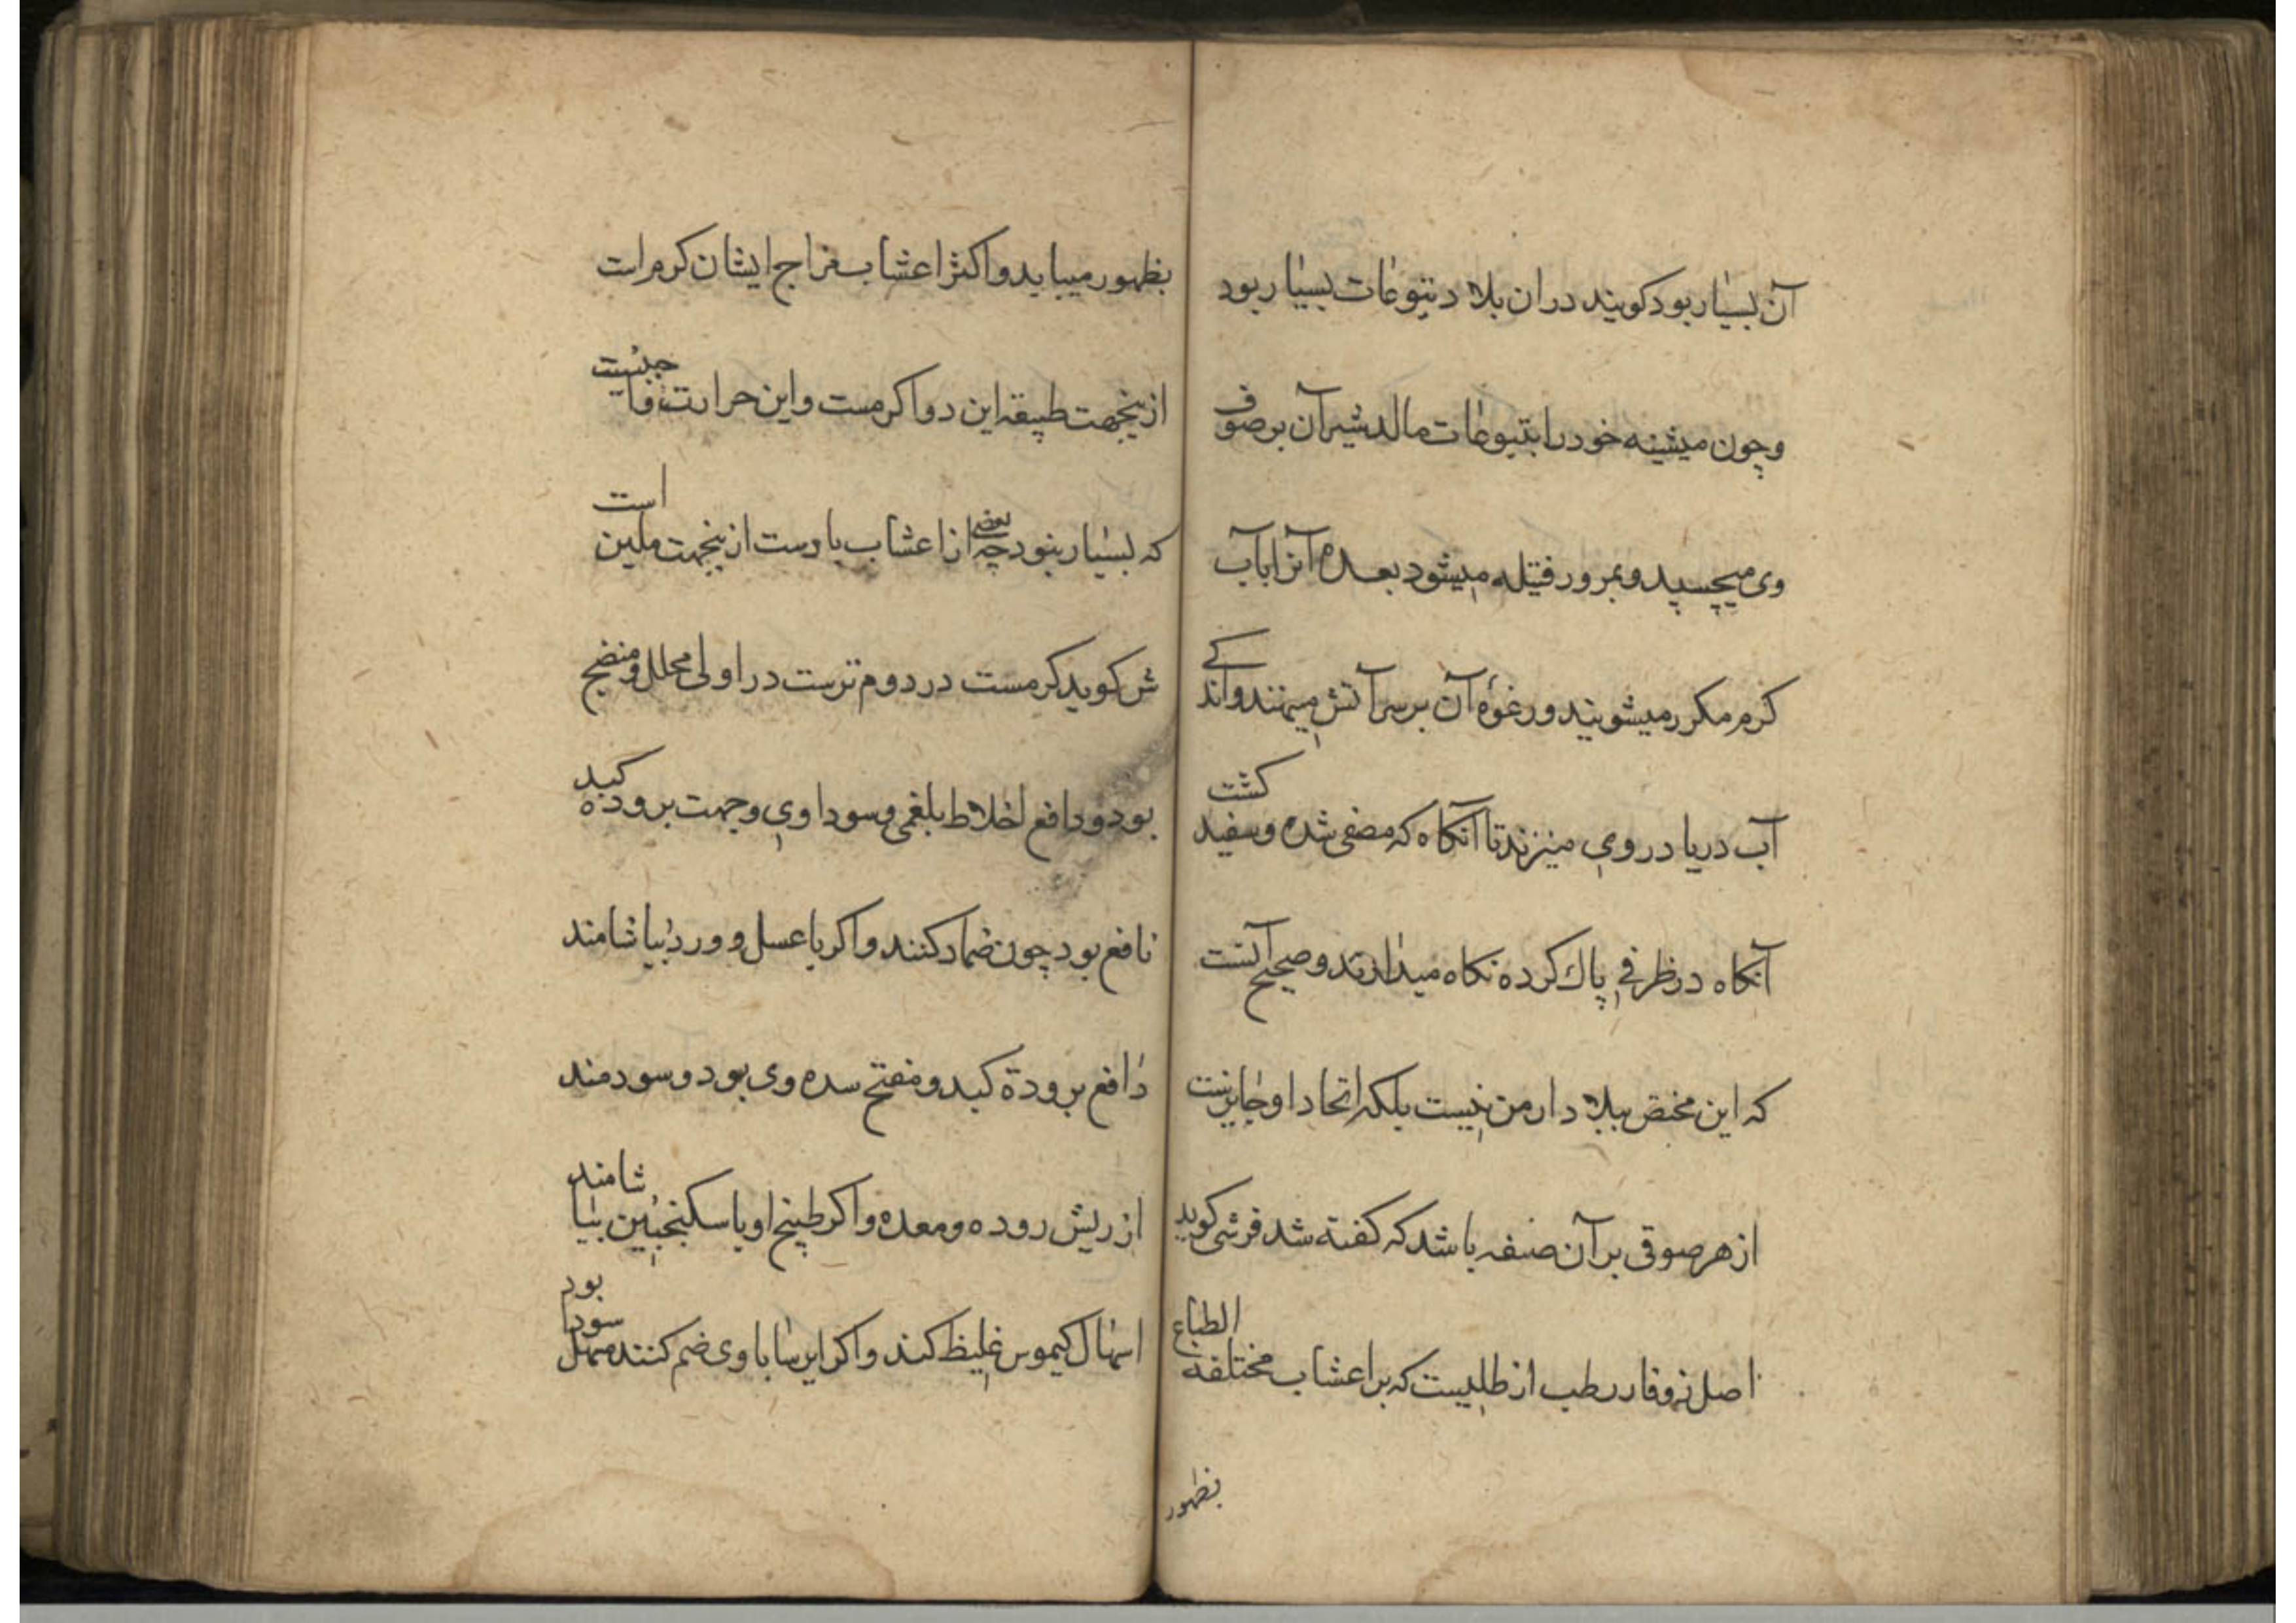 آن بسیار بود کویند در ان بلاد یتوعات بسیار بود
و چون میشینه خود را بتیوعات مالد شیر آن بر صوف
وی میچسپد و بمرور فتیله میشود بعده آنرا بآب
کرم مکرر میشویند و رغوهٔ آن بر سر آتش مینهند و اندکے
آب دریا در وی میزند تا آنکاه که مصفی شده و سفید کشت
آنکاه در ظرفی پاک کرده نکاه میدارند و صحیح آنست
که این مختص ببلاد ارمن نیست بلکه اتحاد او جایزست
از هر صوفی بر آن صفه باشد که کفته شد قرشی کوید
اصل زوفا رطب از طلیست که بر اعشاب مختلفه الطباع
بظهور
بظهور میباید و اکثر اعشاب مزاج ایشان کرم است
ازینجهت طبیقه این دوا کرمست و این حرارت
که بسیار بنود چه بعضی از اعشاب باردست ازینجهت ملین است
ش کوید کرمست در دوم ترست در اولی محلل و منضج
بود و دافع اخلاط بلغمی و سوداوی و جهت بروده کبد
نافع بود چون ضماد کنند و اکر با عسل و ورد بیاشامند
دافع برودة کبد و مفتح سده وی بود و سودمند
از ریش روده و معده و اکر طبیخ او با سکنجبین بیاشامند
اسهال کیموس غلیظ کند و اکر ایرسا با وی ضم کنند مسهل سودا بود